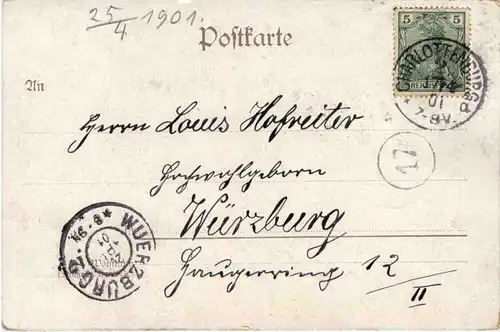 25/4 1901.
Postkarte
5 5
REICHSPOST
CHARLOTTENBURG
01
7-8V.
An
Herrn Louis Hofreiter
Hochwohlgeboren
17
Würzburg
WUERZBURG 2
8-9N.
01
Haugerring 12
II